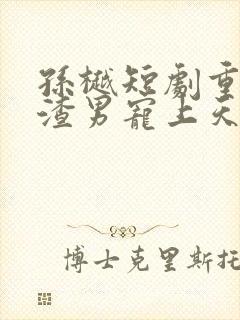 孫樾短劇重
渣男寵上天
博士克里斯托